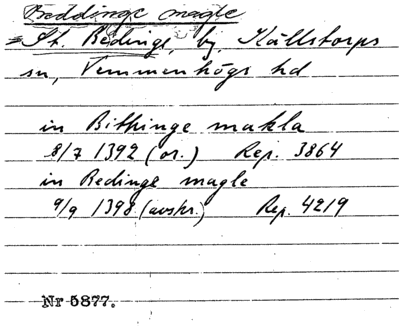 Beddinge magle
= St. Bedinge, by, Källstorps
sn, Vemmenhögs hd
in Bithinge makla
8/7 1392 (or.) Rep. 3864
in Bedinge magle
9/9 1398 (avskr.) Rep. 4219
Nr 5877.